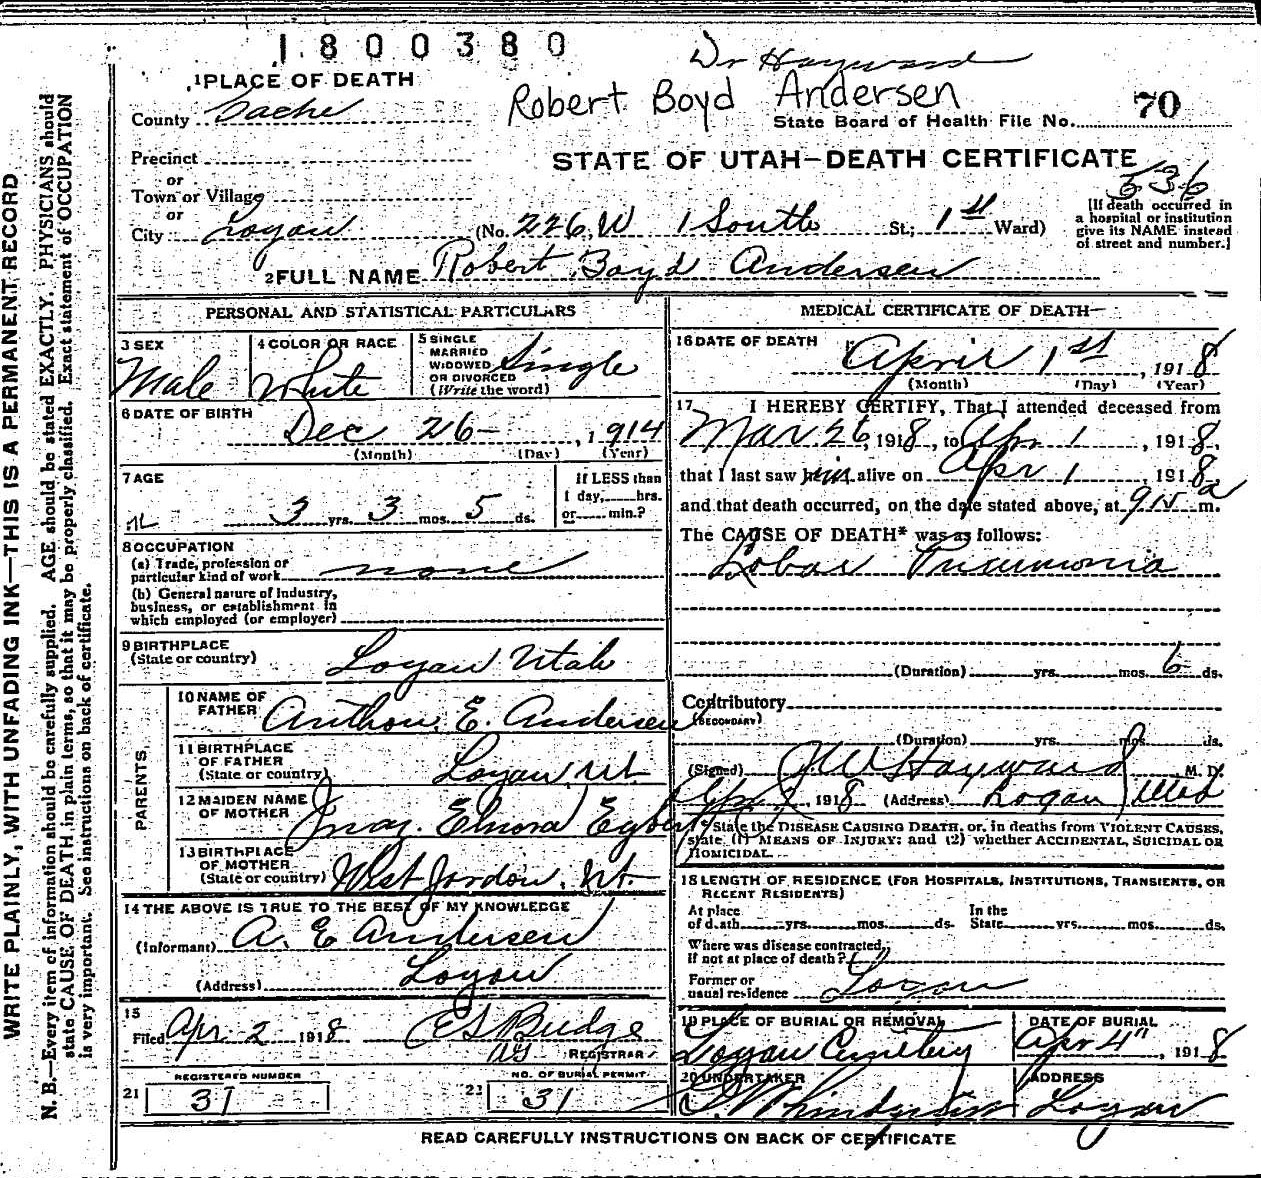 1800380
Dr Hayward
Robert Boyd Andersen
1 PLACE OF DEATH
County Cache
State Board of Health File No. 70
Precinct
STATE OF UTAH—DEATH CERTIFICATE
or
Town or Village
536
or
City Logan (No. 226 W 1 South St.; 1st Ward)
[If death occurred in a hospital or institution give its NAME instead of street and number.]
2 FULL NAME Robert Boyd Andersen
PERSONAL AND STATISTICAL PARTICULARS
3 SEX
Male
4 COLOR OR RACE
White
5 SINGLE
MARRIED
WIDOWED
OR DIVORCED
(Write the word)
Single
6 DATE OF BIRTH
Dec 26 , 1914
(Month) (Day) (Year)
7 AGE
3 yrs. 3 mos. 5 ds.
If LESS than
1 day, hrs.
or min.?
8 OCCUPATION
(a) Trade, profession or
particular kind of work none
(b) General nature of Industry,
business, or establishment in
which employed (or employer)
9 BIRTHPLACE
(State or country) Logan Utah
PARENTS
10 NAME OF
FATHER Anthon. E. Andersen
11 BIRTHPLACE
OF FATHER
(State or country) Logan, Ut.
12 MAIDEN NAME
OF MOTHER Inaz. Elnora Egbert
13 BIRTHPLACE
OF MOTHER
(State or country) West Jordon, Ut.
14 THE ABOVE IS TRUE TO THE BEST OF MY KNOWLEDGE
(Informant) A. E Andersen
(Address) Logan
15
Filed Apr. 2 1918 Budge
REGISTRAR
REGISTERED NUMBER
21 31
NO. OF BURIAL PERMIT
31
MEDICAL CERTIFICATE OF DEATH
16 DATE OF DEATH
April 1st , 1918
(Month) (Day) (Year)
17 I HEREBY CERTIFY, That I attended deceased from
Mar 26, 1918, to Apr 1 , 1918,
that I last saw him alive on Apr 1 , 1918
and that death occurred, on the date stated above, at 915 a m.
The CAUSE OF DEATH* was as follows:
Lobar Pneumonia
(Duration) yrs. mos. 6 ds.
Contributory
(SECONDARY)
(Duration) yrs. mos. ds.
(Signed) Hayward M. D.
1918 (Address) Logan Utah
* State the DISEASE CAUSING DEATH, or, in deaths from VIOLENT CAUSES,
state (1) MEANS OF INJURY; and (2) whether ACCIDENTAL, SUICIDAL OR
HOMICIDAL.
18 LENGTH OF RESIDENCE (FOR HOSPITALS, INSTITUTIONS, TRANSIENTS, OR
RECENT RESIDENTS)
At place
of death yrs. mos. ds.
In the
State yrs. mos. ds.
Where was disease contracted,
If not at place of death?
Former or
usual residence Logan
19 PLACE OF BURIAL OR REMOVAL
Logan Cemetery
DATE OF BURIAL
Apr 4" , 1918
20 UNDERTAKER
ADDRESS
Logan
READ CAREFULLY INSTRUCTIONS ON BACK OF CERTIFICATE
WRITE PLAINLY, WITH UNFADING INK—THIS IS A PERMANENT RECORD
N. B.—Every item of information should be carefully supplied. AGE should be stated EXACTLY. PHYSICIANS should
state CAUSE OF DEATH in plain terms, so that it may be properly classified. Exact statement of OCCUPATION
is very important. See instructions on back of certificate.